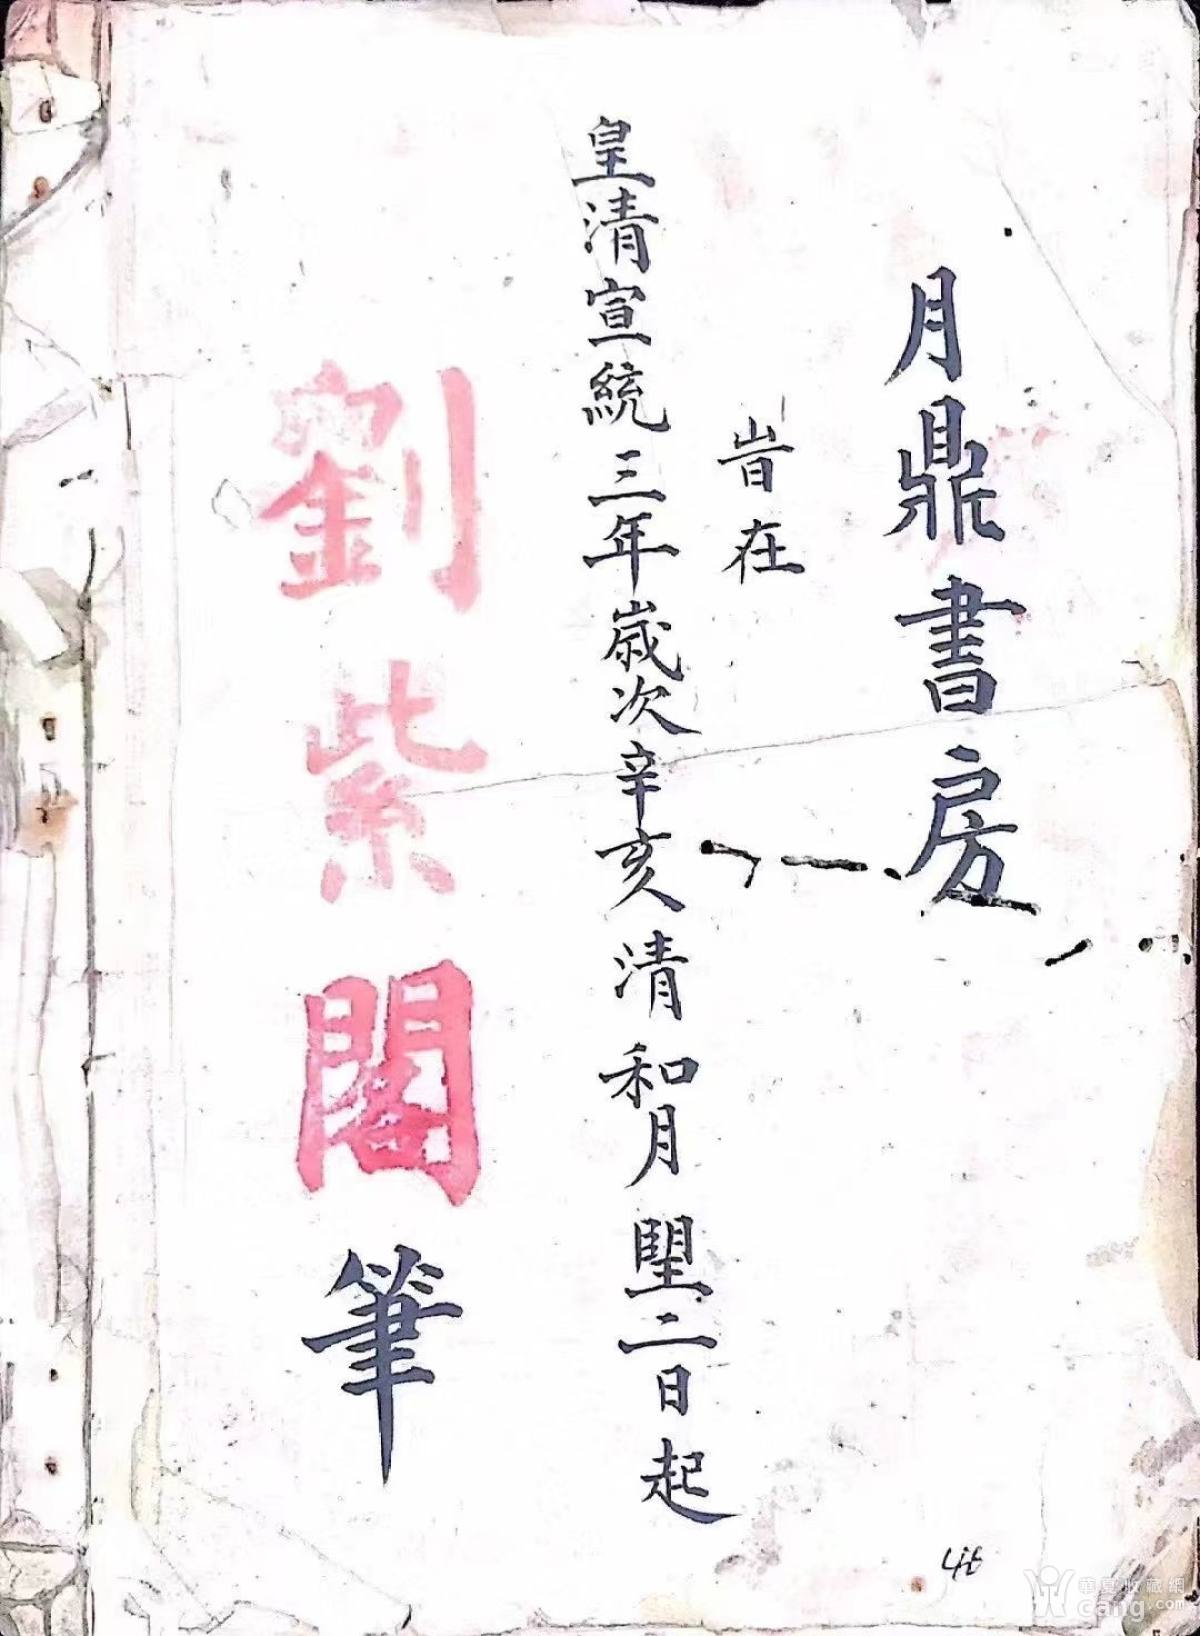 月鼎書房
旹在
皇清宣統三年歲次辛亥清和月朢二日起
劉紫閣筆
華夏收藏網
Cang.com